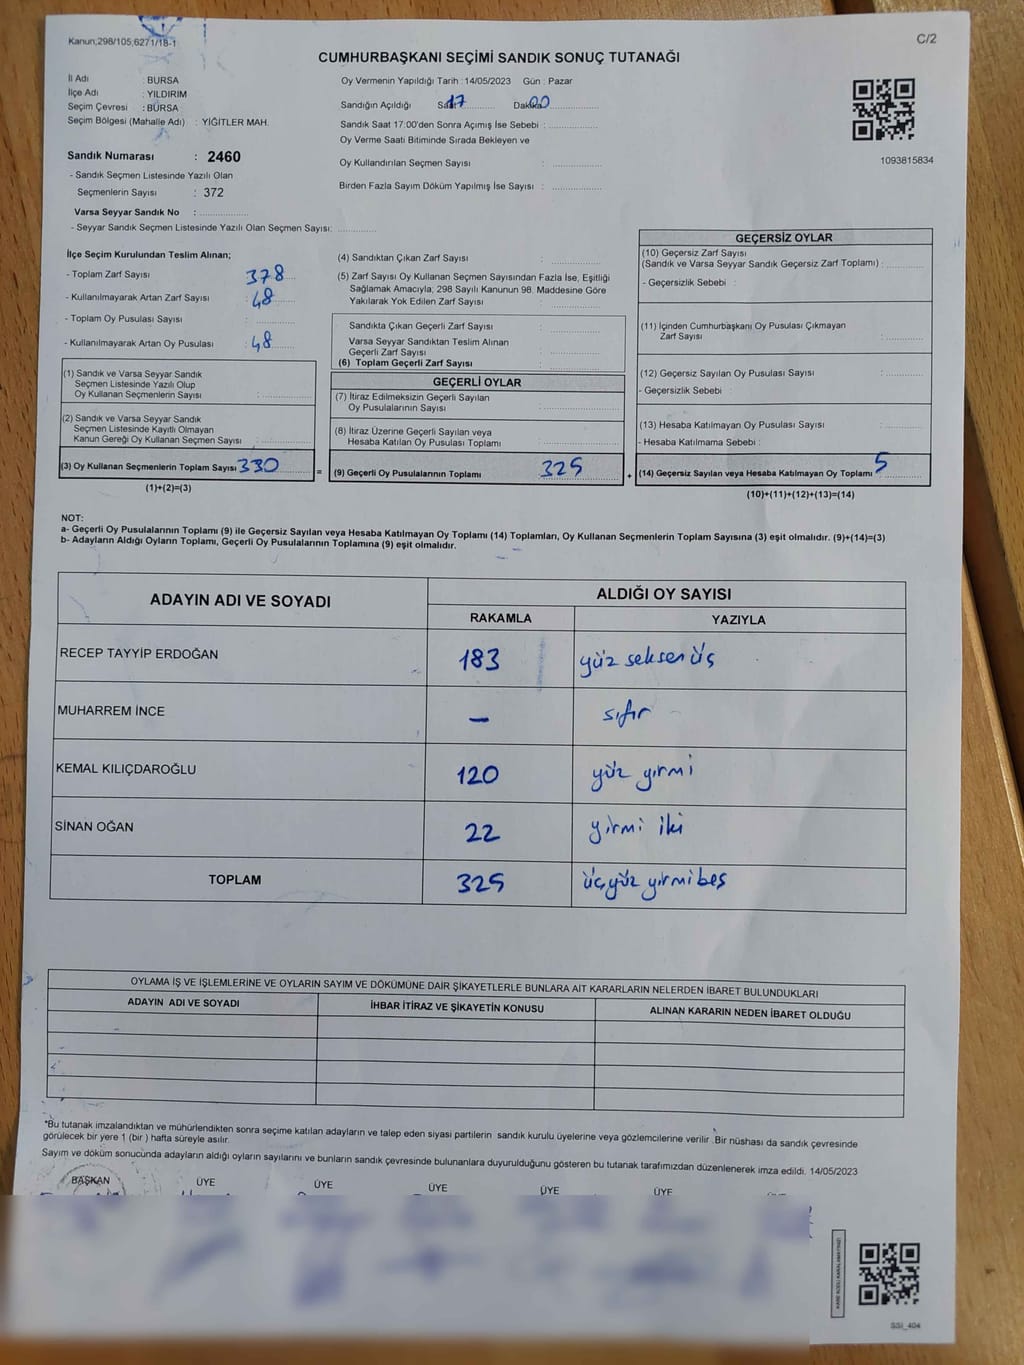 Kanun;298/105;6271/18-1
C/2
CUMHURBAŞKANI SEÇİMİ SANDIK SONUÇ TUTANAĞI
İl Adı : BURSA
İlçe Adı : YILDIRIM
Seçim Çevresi : BURSA
Seçim Bölgesi (Mahalle Adı) : YİĞİTLER MAH.
Oy Vermenin Yapıldığı Tarih :14/05/2023 Gün : Pazar
Sandığın Açıldığı Saat 17 Dakika 00
Sandık Saat 17:00'den Sonra Açımış İse Sebebi :
Oy Verme Saati Bitiminde Sırada Bekleyen ve
Oy Kullandırılan Seçmen Sayısı :
Birden Fazla Sayım Döküm Yapılmış İse Sayısı :
1093815834
Sandık Numarası : 2460
- Sandık Seçmen Listesinde Yazılı Olan
Seçmenlerin Sayısı : 372
Varsa Seyyar Sandık No :
- Seyyar Sandık Seçmen Listesinde Yazılı Olan Seçmen Sayısı:
İlçe Seçim Kurulundan Teslim Alınan;
- Toplam Zarf Sayısı : 378
- Kullanılmayarak Artan Zarf Sayısı : 48
- Toplam Oy Pusulası Sayısı :
- Kullanılmayarak Artan Oy Pusulası : 48
(1) Sandık ve Varsa Seyyar Sandık
Seçmen Listesinde Yazılı Olup
Oy Kullanan Seçmenlerin Sayısı :
(2) Sandık ve Varsa Seyyar Sandık
Seçmen Listesinde Kayıtlı Olmayan
Kanun Gereği Oy Kullanan Seçmen Sayısı :
(3) Oy Kullanan Seçmenlerin Toplam Sayısı 330
(1)+(2)=(3)
=
(4) Sandıktan Çıkan Zarf Sayısı :
(5) Zarf Sayısı Oy Kullanan Seçmen Sayısından Fazla İse, Eşitliği
Sağlamak Amacıyla; 298 Sayılı Kanunun 98. Maddesine Göre
Yakılarak Yok Edilen Zarf Sayısı :
Sandıkta Çıkan Geçerli Zarf Sayısı :
Varsa Seyyar Sandıktan Teslim Alınan
Geçerli Zarf Sayısı :
(6) Toplam Geçerli Zarf Sayısı :
GEÇERLİ OYLAR
(7) İtiraz Edilmeksizin Geçerli Sayılan
Oy Pusulalarının Sayısı :
(8) İtiraz Üzerine Geçerli Sayılan veya
Hesaba Katılan Oy Pusulası Toplamı :
(9) Geçerli Oy Pusulalarının Toplamı : 325
+
GEÇERSİZ OYLAR
(10) Geçersiz Zarf Sayısı
(Sandık ve Varsa Seyyar Sandık Geçersiz Zarf Toplamı) :
- Geçersizlik Sebebi :
(11) İçinden Cumhurbaşkanı Oy Pusulası Çıkmayan
Zarf Sayısı :
(12) Geçersiz Sayılan Oy Pusulası Sayısı :
- Geçersizlik Sebebi :
(13) Hesaba Katılmayan Oy Pusulası Sayısı :
- Hesaba Katılmama Sebebi :
(14) Geçersiz Sayılan veya Hesaba Katılmayan Oy Toplamı : 5
(10)+(11)+(12)+(13)=(14)
NOT:
a- Geçerli Oy Pusulalarının Toplamı (9) ile Geçersiz Sayılan veya Hesaba Katılmayan Oy Toplamı (14) Toplamları, Oy Kullanan Seçmenlerin Toplam Sayısına (3) eşit olmalıdır. (9)+(14)=(3)
b- Adayların Aldığı Oyların Toplamı, Geçerli Oy Pusulalarının Toplamına (9) eşit olmalıdır.
ADAYIN ADI VE SOYADI
ALDIĞI OY SAYISI
RAKAMLA YAZIYLA
RECEP TAYYİP ERDOĞAN 183 yüz seksen üç
MUHARREM İNCE – sıfır
KEMAL KILIÇDAROĞLU 120 yüz yirmi
SİNAN OĞAN 22 yirmi iki
TOPLAM 325 üçyüz yirmibeş
OYLAMA İŞ VE İŞLEMLERİNE VE OYLARIN SAYIM VE DÖKÜMÜNE DAİR ŞİKAYETLERLE BUNLARA AİT KARARLARIN NELERDEN İBARET BULUNDUKLARI
ADAYIN ADI VE SOYADI İHBAR İTİRAZ VE ŞİKAYETİN KONUSU ALINAN KARARIN NEDEN İBARET OLDUĞU
*Bu tutanak imzalandıktan ve mühürlendikten sonra seçime katılan adayların ve talep eden siyasi partilerin sandık kurulu üyelerine veya gözlemcilerine verilir. Bir nüshası da sandık çevresinde
görülecek bir yere 1 (bir ) hafta süreyle asılır.
Sayım ve döküm sonucunda adayların aldığı oyların sayılarını ve bunların sandık çevresinde bulunanlara duyurulduğunu gösteren bu tutanak tarafımızdan düzenlenerek imza edildi. 14/05/2023
BAŞKAN ÜYE ÜYE ÜYE ÜYE ÜYE
SSİ_404